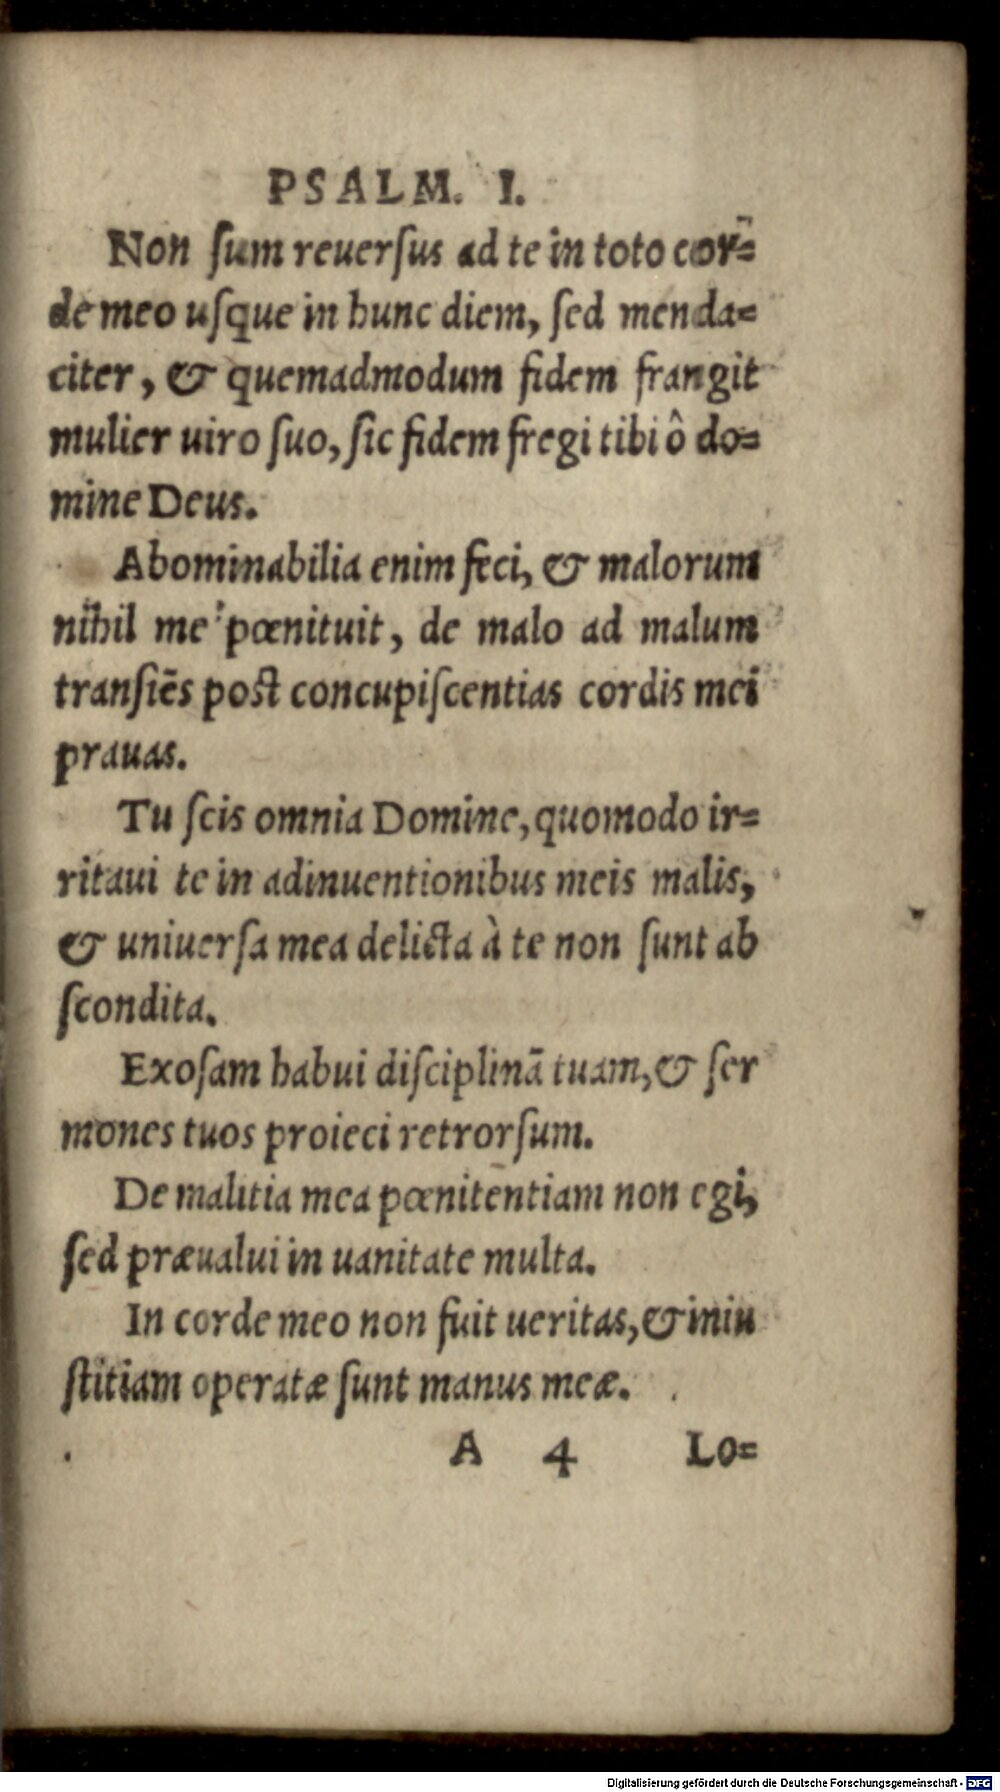 PSALM. I.
Non ſum reuerſus ad te in toto cor=
de meo uſque in hunc diem, ſed menda=
citer, & quemadmodum fidem frangit
mulier uiro ſuo, ſic fidem fregi tibi ô do=
mine Deus.
Abominabilia enim feci, & malorum
nihil me pœnituit, de malo ad malum
tranſiẽs poſt concupiſcentias cordis mei
prauas.
Tu ſcis omnia Domine, quomodo ir=
ritaui te in adinuentionibus meis malis,
& uniuerſa mea delicta à te non ſunt ab
ſcondita.
Exoſam habui diſciplinã tuam, & ſer
mones tuos proieci retrorſum.
De malitia mea pœnitentiam non egi,
ſed præualui in uanitate multa.
In corde meo non fuit ueritas, & iniu
ſtitiam operatæ ſunt manus meæ.
A 4 Lo=
Digitalisierung gefördert durch die Deutsche Forschungsgemeinschaft - DFG